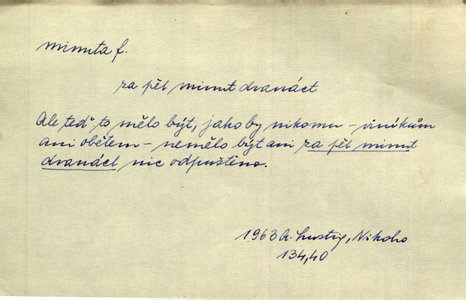 minuta f.
za pět minut dvanáct
Ale teď to mělo být, jako by nikomu – viníkům
ani obětem – nemělo být ani za pět minut
dvanáct nic odpuštěno.
1963 A. Lustig, Nikoho
134,40